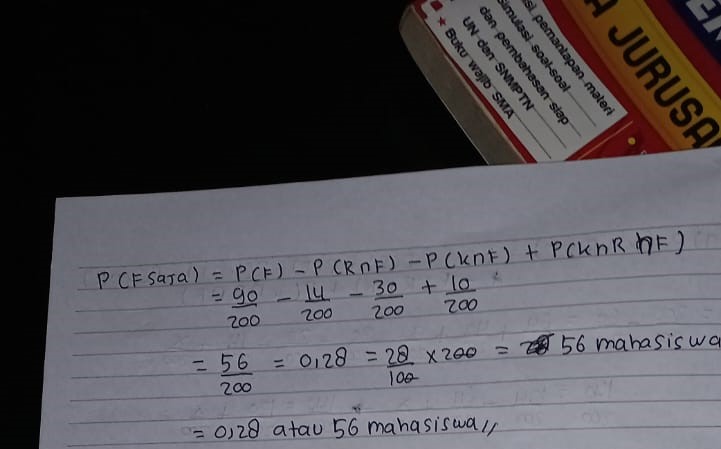 EN
A JURUSA
isi pemantapan materi
simulasi soal-soal
dan pembahasan siap
UN dan SNMPTN
* Buku wajib SMA
P(F saja) = P(F) - P(R∩F) - P(K∩F) + P(K∩R∩F)
= 90/200 - 14/200 - 30/200 + 10/200
= 56/200 = 0,28 = 28/100 × 200 = 56 mahasiswa
= 0,28 atau 56 mahasiswa //